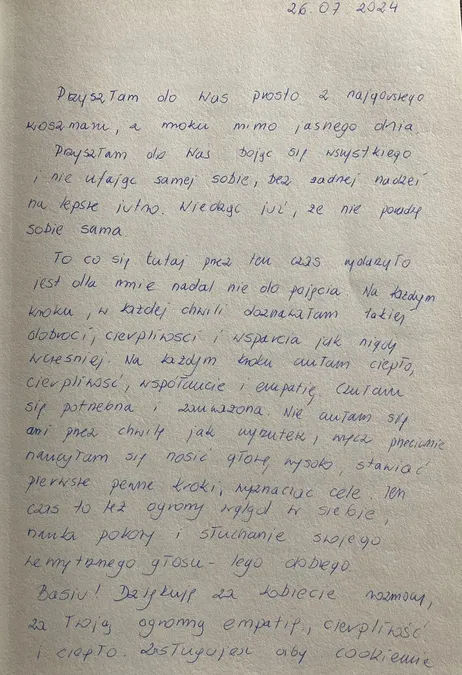 26.07.2024
Przyszłam do Was prosto z najgorszego
koszmaru, z mroku mimo jasnego dnia.
Przyszłam do Was bojąc się wszystkiego
i nie ufając samej sobie, bez żadnej nadziei
na lepsze jutro. Wiedząc już, że nie poradzę
sobie sama.
To co się tutaj przez ten czas wydarzyło
jest dla mnie nadal nie do pojęcia. Na każdym
kroku, w każdej chwili doznawałam takiej
dobroci, cierpliwości i wsparcia jak nigdy
wcześniej. Na każdym kroku czułam ciepło,
cierpliwość, współczucie i empatię. Czułam
się potrzebna i zauważona. Nie czułam się
ani przez chwilę jak wyrzutek, wręcz przeciwnie
nauczyłam się nosić głowę wysoko, stawiać
pierwsze pewne kroki, wyznaczać cele. Ten
czas to też ogromy wgląd w siebie,
nauka pokory i słuchanie swojego
wewnętrznego głosu - tego dobrego.
Basiu! Dziękuję za kobiece rozmowy,
za Twoją ogromną empatię, cierpliwość
i ciepło. Zasługujesz aby codziennie